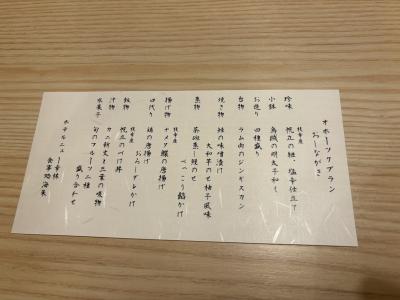 オホーツクプラン
おしながき
珍味
枝幸産
帆立の紐、塩辛仕立て
小鉢
烏賊の明太子和え
お造り
四種盛り
台物
ラム肉のジンギスカン
焼き物
鮭の味噌漬け
大和芋のせ柚子風味
蒸物
茶碗蒸し鰻のせ
べっこう餡かけ
揚げ物
枝幸産
ナメタ鰈の唐揚げ
口代り
鶏の唐揚げ
おろしダレかけ
飯物
枝幸産
帆立のづけ丼
汁物
カニ新丈と三葉の吸物
水菓子
旬のフルーツ二種
盛り合わせ
ホテルニュー幸林
食事処海来